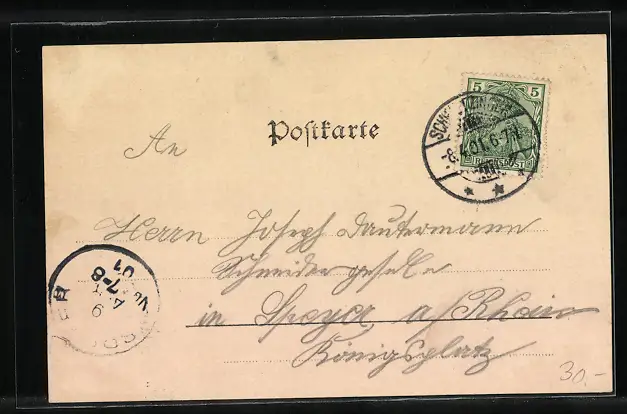 An
Postkarte
5
REICHSPOST
-8.4.01.6-7N.
Herrn Joseph Dautermann
Schneidergeselle
in Speyer a/Rhein
Königsplatz
7-8
01
9
30.-